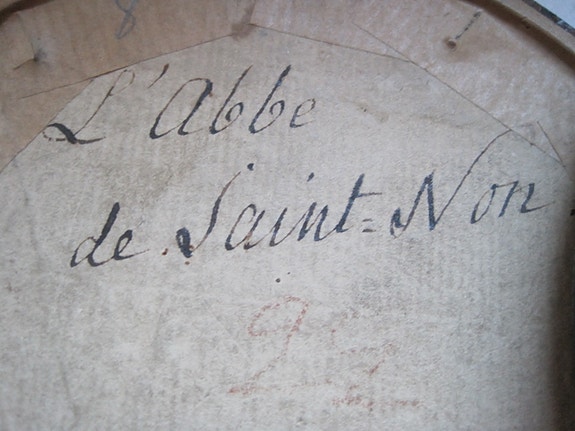 8
L'Abbe
de Saint=Non